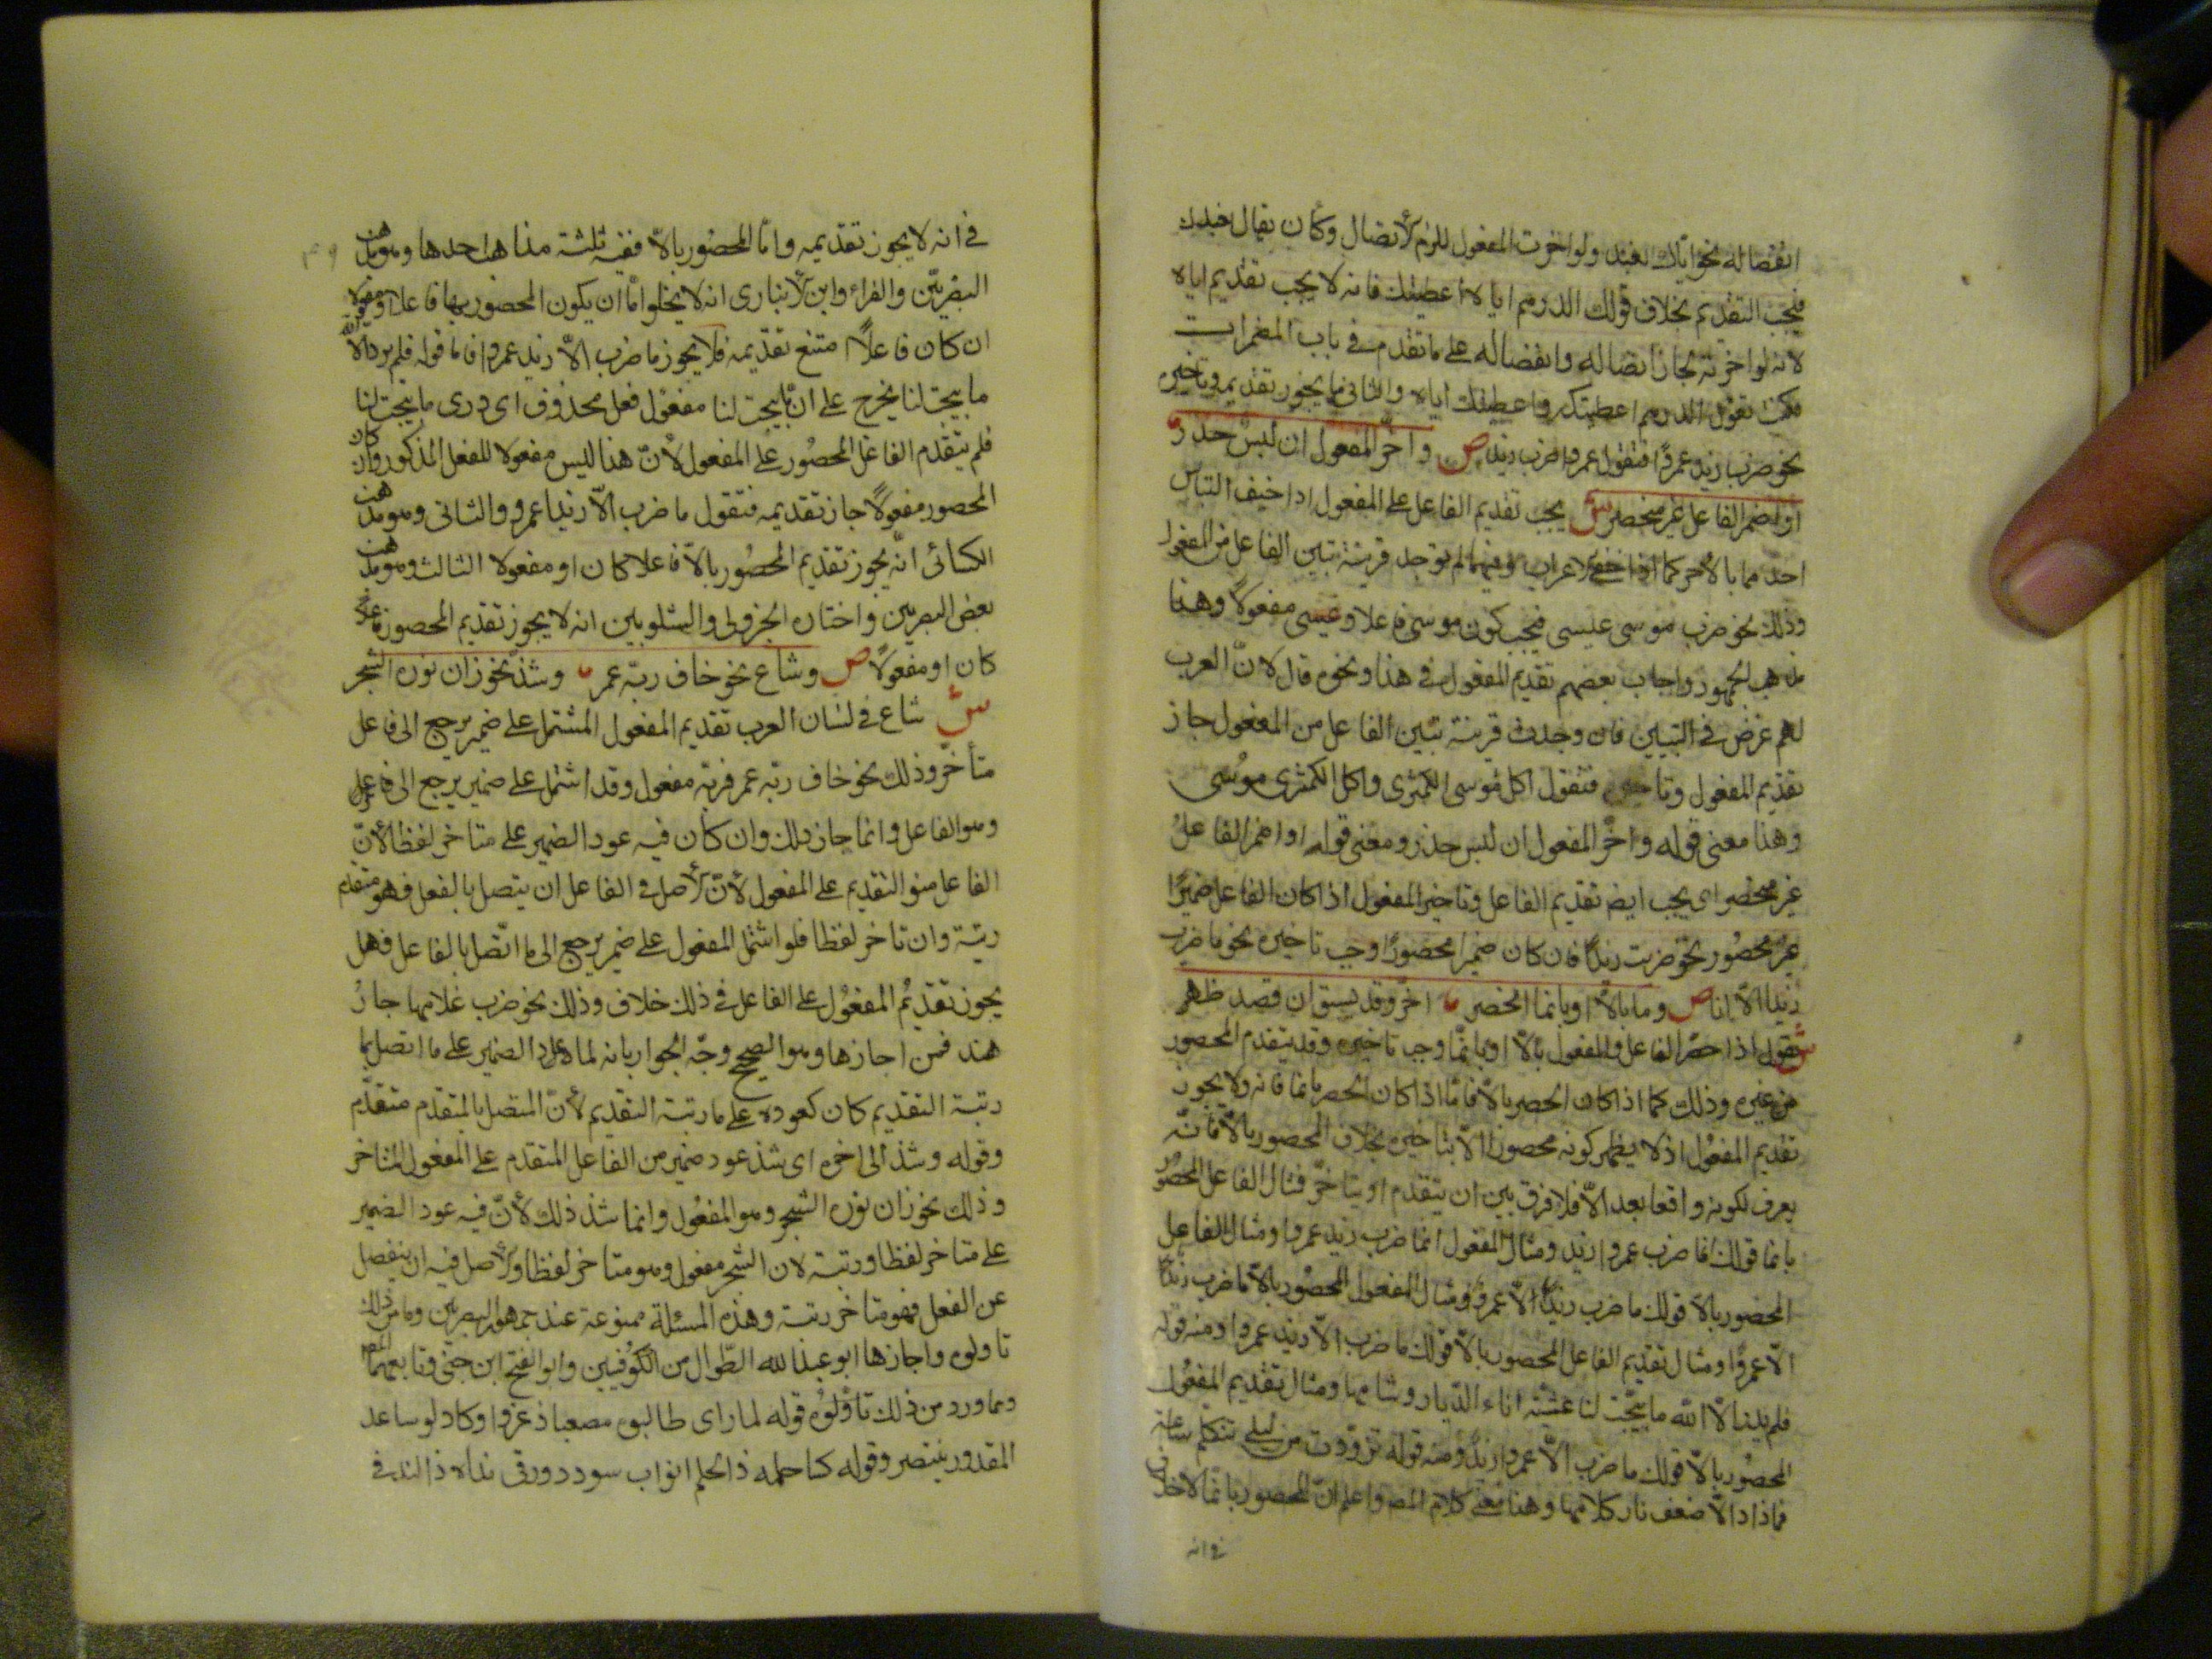 انفصاله نحو اياك نعبد ولو اخرت المفعول للزم الاتصال وكان يقال نعبدك
فيجب التقديم بخلاف قولك الدرهم اياه اعطيتك فانه لا يجب تقديم اياه
لانه لو اخرته لجاز اتصاله وانفصاله على ما تقدم في باب المضمرات
فكنت تقول الدرهم اعطيتكه واعطيتك اياه والثاني ما يجوز تقديمه وتاخيره
نحو ضرب زيد عمرا فتقول عمرا ضرب زيد ص واخر المفعول ان لبس حذر
او اضمر الفاعل غير منحصر ش يجب تقديم الفاعل على المفعول اذا خيف التباس
احدهما بالاخر كما اذا خفي الاعراب فيهما لم توجد قرينة تبين الفاعل من المفعول
وذلك نحو ضرب موسى عيسى فيجب كون موسى فاعلا وعيسى مفعولا وهذا
مذهب الجمهور واجاب بعضهم تقديم المفعول في هذا ونحوه قال لان العرب
لهم غرض في التبيين فان وجدت قرينة تبين الفاعل من المفعول جاز
تقديم المفعول وتاخيره فتقول اكل موسى الكمثرى واكل الكمثرى موسى
وهذا معنى قوله واخر المفعول ان لبس حذر ومعنى قوله او اضمر الفاعل
غير منحصر اى يجب ايضا تقديم الفاعل وتاخير المفعول اذا كان الفاعل ضميرا
غير محصور نحو ضربت زيدا فان كان ضميرا محصورا وجب تاخيره نحو ما ضرب
زيدا الا انا ص وما بالا او بانما انحصر اخر وقد يسبق ان قصد ظهر
ش تقول اذا حصر الفاعل والمفعول بالا او بانما وجب تاخيره وقد يتقدم المحصور
من غيره وذلك كما اذا كان الحصر بالا فاما اذا كان الحصر بانما فانه ولا يجوز
تقديم المفعول اذ لا يظهر كونه محصورا الا بتاخيره بخلاف المحصور بالا فانه
يعرف لكونه واقعا بعد الا فلا فرق بين ان يتقدم او يتاخر فمثال الفاعل المحصور
بانما قولك انما ضرب عمرا زيد ومثال المفعول انما ضرب زيد عمرا ومثال الفاعل
المحصور بالا قولك ما ضرب زيدا الا عمرو ومثال المفعول المحصور بالا ما ضرب زيد
الا عمرا ومثال تقديم الفاعل المحصور بالا قولك ما ضرب الا زيد عمرا ومنه قوله
فلم يدر الا الله ما هيجت لنا عشية اناء الديار وشامها ومثال تقديم المفعول
المحصور بالا قولك ما ضرب الا عمرا زيد ومنه قوله تزودت من ليلى بتكليم ساعة
فما زاد الا ضعف نار كلامها وهذا معنى كلام المص واعلم ان المحصور بانما لا خلاف
في انه
في انه لا يجوز تقديمه واما المحصور بالا ففيه ثلثة مذاهب احدها وهو مذهب
البصريين والفراء وابن الانبارى انه لا يخلو اما ان يكون المحصور بها فاعلا او مفعولا
ان كان فاعلا امتنع تقديمه فلا يجوز ما ضرب الا زيد عمرا فاما قوله فلم يدر الا الله
ما هيجت لنا يخرج على ان ما هيجت لنا مفعول فعل محذوف اى درى ما هيجت لنا
فلم يتقدم الفاعل المحصور على المفعول لان هذا ليس مفعولا للفعل المذكور وان كان
المحصور مفعولا جاز تقديمه فتقول ما ضرب الا زيدا عمرو والثانى وهو مذهب
الكسائى انه يجوز تقديم المحصور بالا فاعلا كان او مفعولا الثالث وهو مذهب
بعض البصريين واختاره الجزولى والشلوبين انه لا يجوز تقديم المحصور فاعلا
كان او مفعولا ص وشاع نحو خاف ربه عمر وشذ نحو زان نوره الشجر
ش شاع في لسان العرب تقديم المفعول المشتمل على ضمير يرجع الى فاعل
متأخر وذلك نحو خاف ربه عمر فربه مفعول وقد اشتمل على ضمير يرجع الى فاعل
وهو الفاعل وانما جاز ذلك وان كان فيه عود الضمير على متاخر لفظا لان
الفاعل منو التقديم على المفعول لان الاصل في الفاعل ان يتصل بالفعل فهو متقدم
رتبة وان تاخر لفظا فلو اشتمل المفعول على ضمير يرجع الى ما اتصل بالفاعل فهل
يجوز تقديم المفعول على الفاعل في ذلك خلاف وذلك نحو ضرب غلامها جار
هند فمن اجازها وهو الصحيح وجه الجواز بانه لما عاد الضمير على ما اتصل بما
رتبة التقديم كان كعوده على ما رتبة التقديم لان المتصل بالمتقدم متقدم
وقوله وشذ الى اخره اى شذ عود ضمير من الفاعل المتقدم على المفعول المتاخر
وذلك نحو زان نوره الشجر وهو المفعول وانما شذ ذلك لان فيه عود الضمير
على متاخر لفظا ورتبة لان الشجر مفعول وهو متاخر لفظا والاصل فيه ان ينفصل
عن الفعل فهو متاخر رتبة وهذه المسئلة ممنوعة عند جمهور البصريين وما من ذلك
تاولوه واجازها ابو عبد الله الطوال من الكوفيين وابو الفتح ابن جنى وتابعهما المص
ومما ورد من ذلك تاولوه قوله لما راى طالبوه مصعبا ذعروا وكاد لو ساعد
المقدور ينتصر وقوله كسا حلمه ذا الحلم اثواب سودد ورقى نداه ذا الندى في